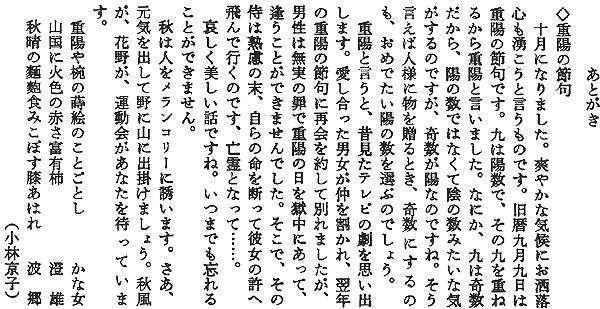 あとがき
◇重陽の節句
十月になりました。爽やかな気候にお洒落
心も湧こうと言うものです。旧暦九月九日は
重陽の節句です。九は陽数で、その九を重ね
るから重陽と言いました。なにか、九は奇数
だから、陽の数ではなくて陰の数みたいな気
がするのですが、奇数が陽なのですね。そう
言えば人様に物を贈るとき、奇数にするの
も、おめでたい陽の数を選ぶのでしょう。
重陽と言うと、昔見たテレビの劇を思い出
します。愛し合った男女が仲を割かれ、翌年
の重陽の節句に再会を約して別れましたが、
男性は無実の罪で重陽の日を獄中にあって、
逢うことができませんでした。そこで、その
侍は熟慮の末、自らの命を断って彼女の許へ
飛んで行くのです、亡霊となって……。
哀しく美しい話ですね。いつまでも忘れる
ことができません。
秋は人をメランコリーに誘います。さあ、
元気を出して野に山に出掛けましょう。秋風
が、花野が、運動会があなたを待っていま
す。
重陽や椀の蒔絵のことごとし かな女
山国に火色の赤さ富有柿 澄雄
秋晴の麺麭食みこぼす膝あはれ 波郷
(小林京子)